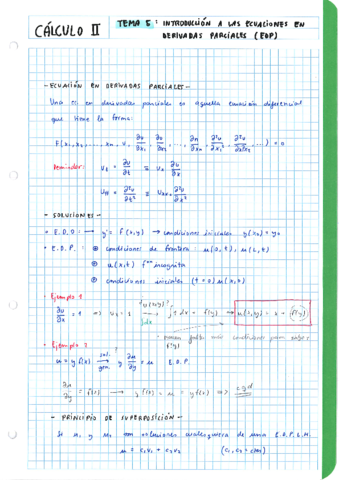 CÁLCULO II
TEMA 5: INTRODUCCIÓN A LAS ECUACIONES EN
DERIVADAS PARCIALES (EDP)
- ECUACIÓN EN DERIVADAS PARCIALES -
Una ec en derivadas parciales es aquella ecuación diferencial
que tiene la forma:
F(x₁, x₂, ..., xn, u, ∂u/∂x₁, ∂u/∂x₂, ..., ∂u/∂xn, ∂²u/∂x₁², ∂²u/∂x₁∂x₂, ...) = 0
Reminder: u_t = ∂u/∂t ≡ u_x = ∂u/∂x
u_tt = ∂²u/∂t² ≡ u_xx = ∂²u/∂x²
- SOLUCIONES -
• E.D.O: → y' = f(x,y) → condiciones iniciales y(x₀) = y₀
• E.D.P.: condiciones de frontera u(0,t), u(L,t)
u(x,t) fⁿ incognita
condiciones iniciales (t=0) u(x,t)
• Ejemplo 1
∂u/∂x = 1 ⇒ u_x = 1 → ∫1 dx + f(y) → u(x,y) = x + f(y)
• hacen falta más condiciones para saber f(y)
• Ejemplo 2
u = y f(x) E.D.P.
∂u/∂y = f(x) → y f(x) = u = y f(x) ⇒
- PRINCIPIO DE SUPERPOSICIÓN -
Si u₁ y u₂ son soluciones cualesquiera de una E.D.P.L.H.
u = c₁u₁ + c₂u₂ (c₁, c₂ = ctes)